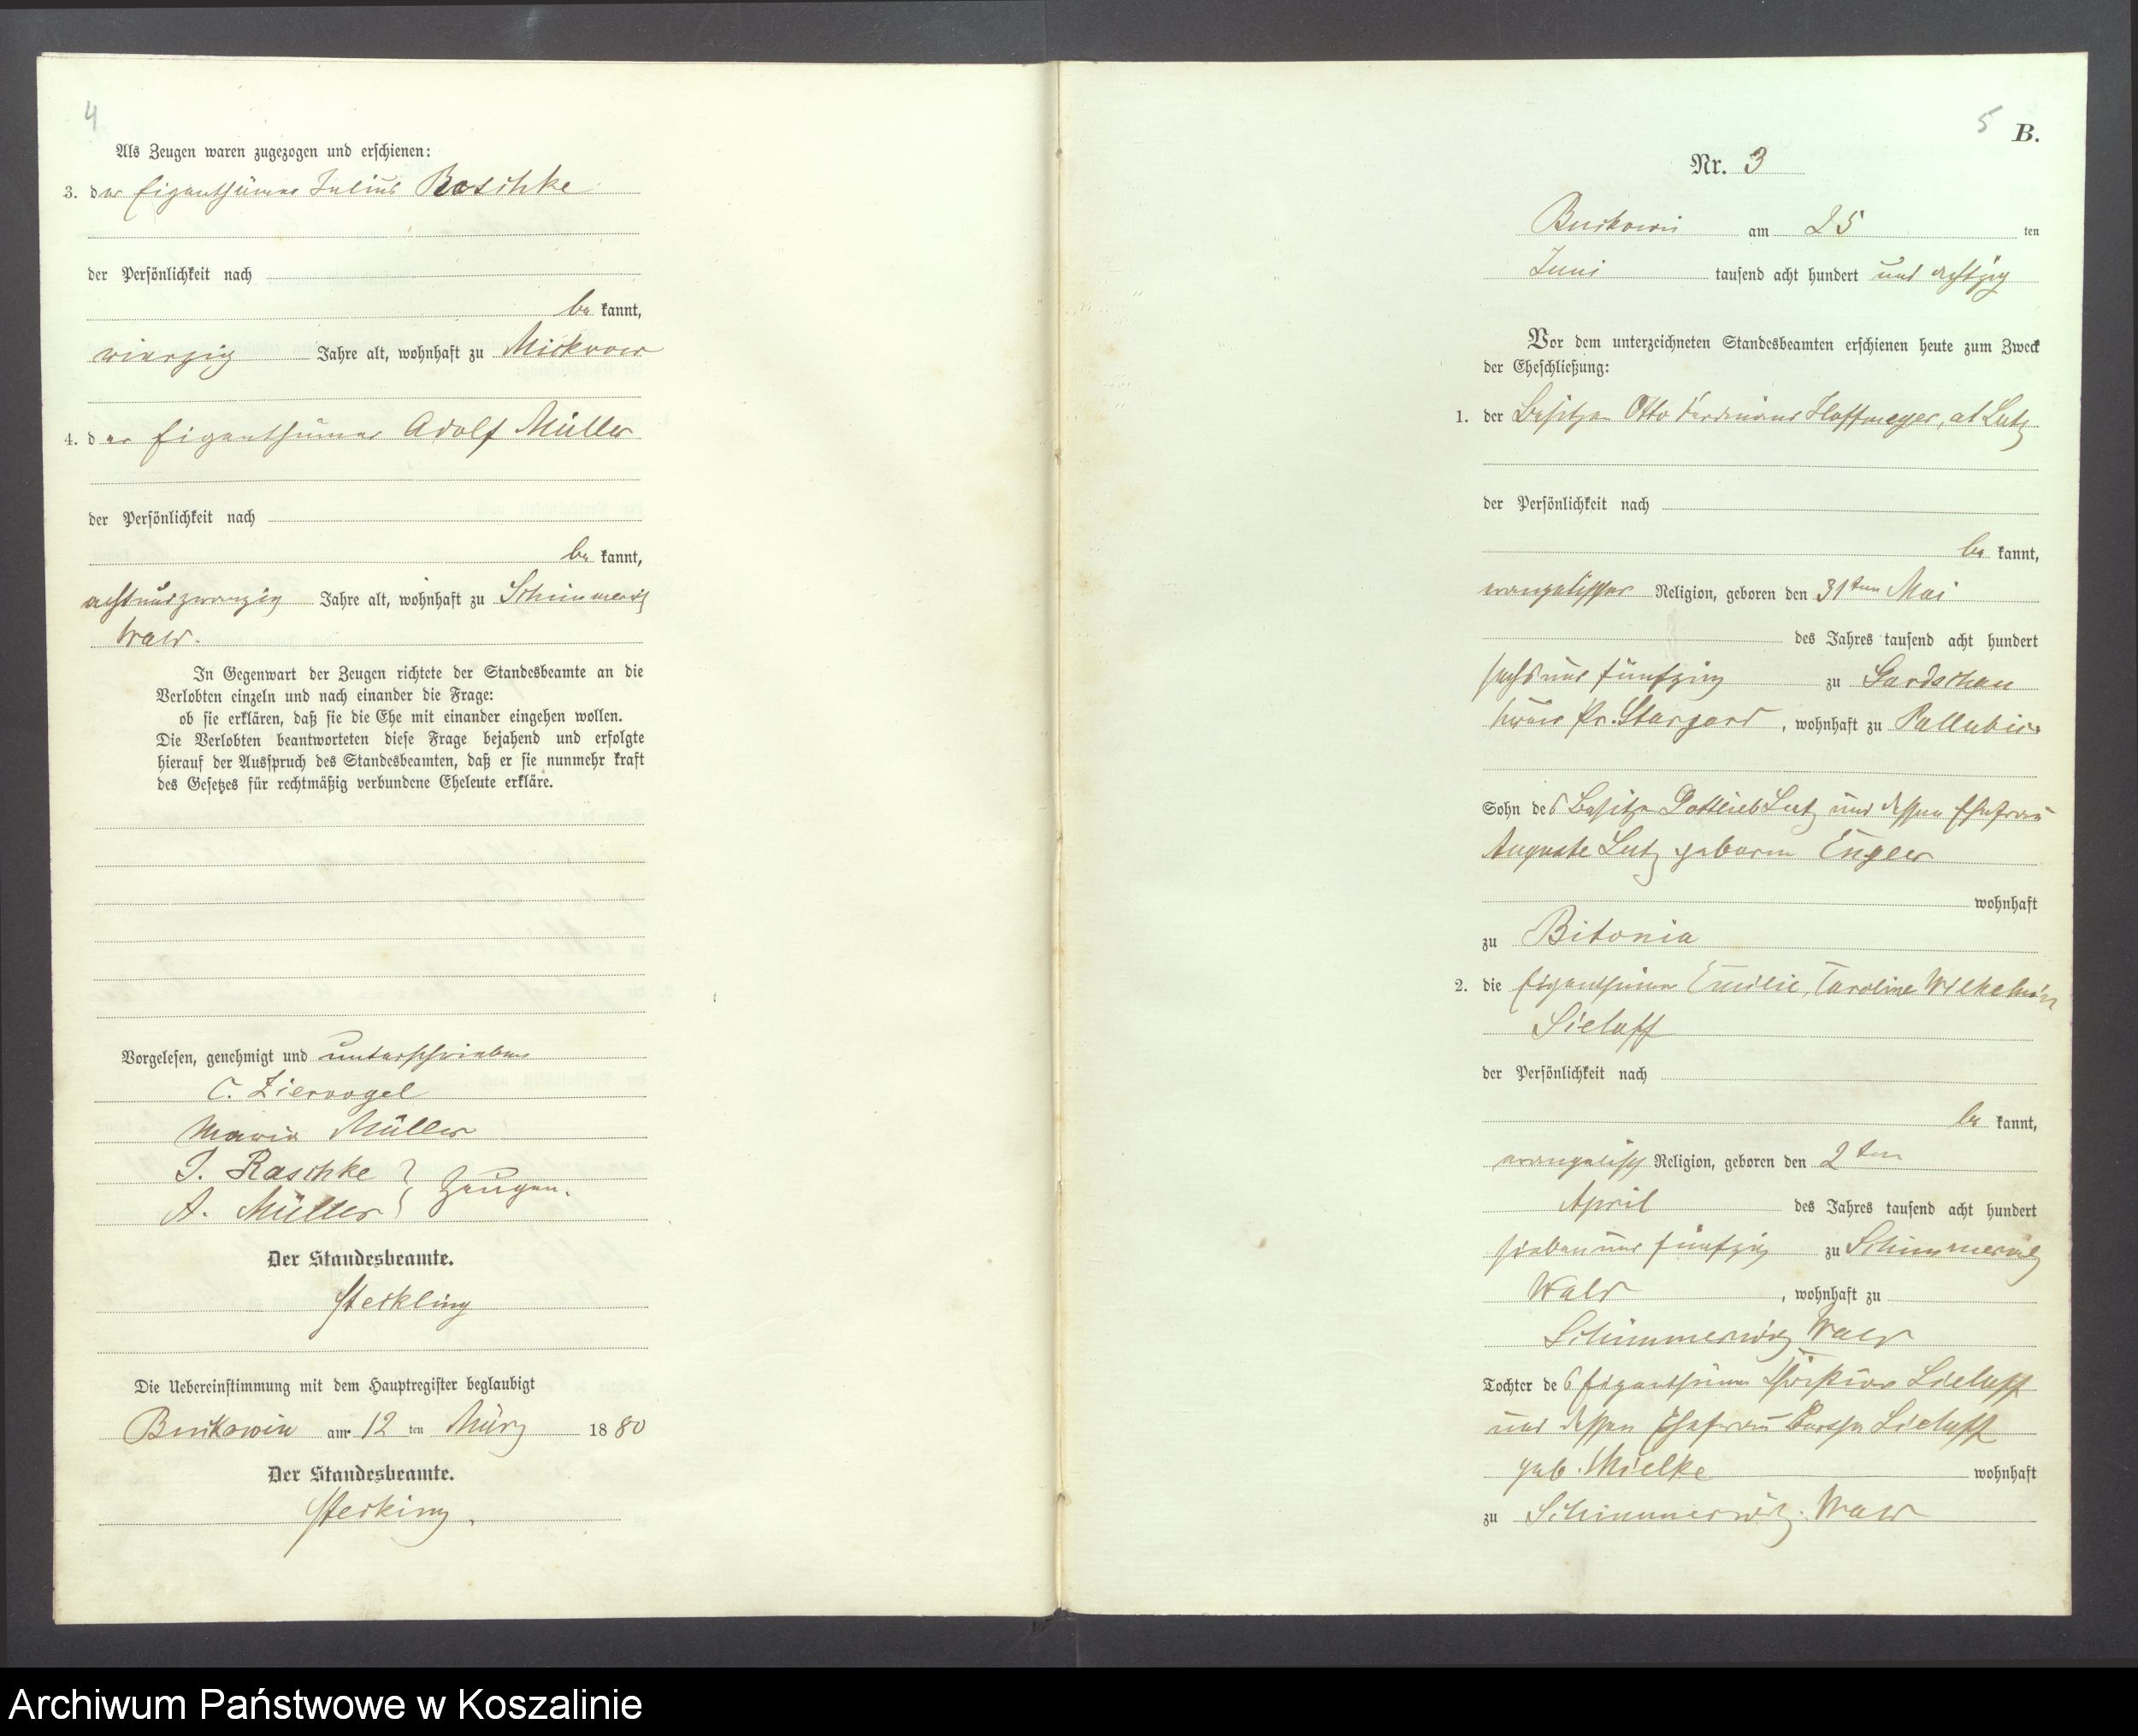 4
Als Zeugen waren zugezogen und erschienen:
3. der Eigenthümer Julius Raschke
der Persönlichkeit nach
be kannt,
vierzig Jahre alt, wohnhaft zu Mickrow
4. der Eigenthümer Adolf Müller
der Persönlichkeit nach
be kannt,
achtundzwanzig Jahre alt, wohnhaft zu Schimmerwitz
Wald.
In Gegenwart der Zeugen richtete der Standesbeamte an die
Verlobten einzeln und nach einander die Frage:
ob sie erklären, daß sie die Ehe mit einander eingehen wollen.
Die Verlobten beantworteten diese Frage bejahend und erfolgte
hierauf der Ausspruch des Standesbeamten, daß er sie nunmehr kraft
des Gesetzes für rechtmäßig verbundene Eheleute erkläre.
Vorgelesen, genehmigt und unterschrieben
C. Ziervogel
Maria Müller
J. Raschke
A. Müller } Zeugen.
Der Standesbeamte.
Steckling
Die Uebereinstimmung mit dem Hauptregister beglaubigt
Buckowin am 12 ten März 1880
Der Standesbeamte.
5 B.
Nr. 3
Buckowin am 25 ten
Juni tausend acht hundert und achtzig
Vor dem unterzeichneten Standesbeamten erschienen heute zum Zweck
der Eheschließung:
1. der Besitzer Otto Ferdinand Hoffmeyer, at Lutz
der Persönlichkeit nach
be kannt,
evangelischer Religion, geboren den 31ten Mai
des Jahres tausend acht hundert
sechs und fünfzig zu Gardschau
Kreis Pr. Stargard, wohnhaft zu Pallubin
Sohn des Besitzer Gottlieb Lutz und dessen Ehefrau
Auguste Lutz geboren Engler
wohnhaft
zu Bitonia
2. die Emilie, Caroline Wilhelmin
Sielaff
der Persönlichkeit nach
be kannt,
evangelisch Religion, geboren den 2ten
April des Jahres tausend acht hundert
sieben und fünfzig zu Schimmerwitz
Wald, wohnhaft zu
Schimmerwitz Wald
Tochter des Eigenthümer Sielaff
und dessen Ehefrau Sielaff
geb. Mielke wohnhaft
zu Schimmerwitz. Wald
Archiwum Państwowe w Koszalinie